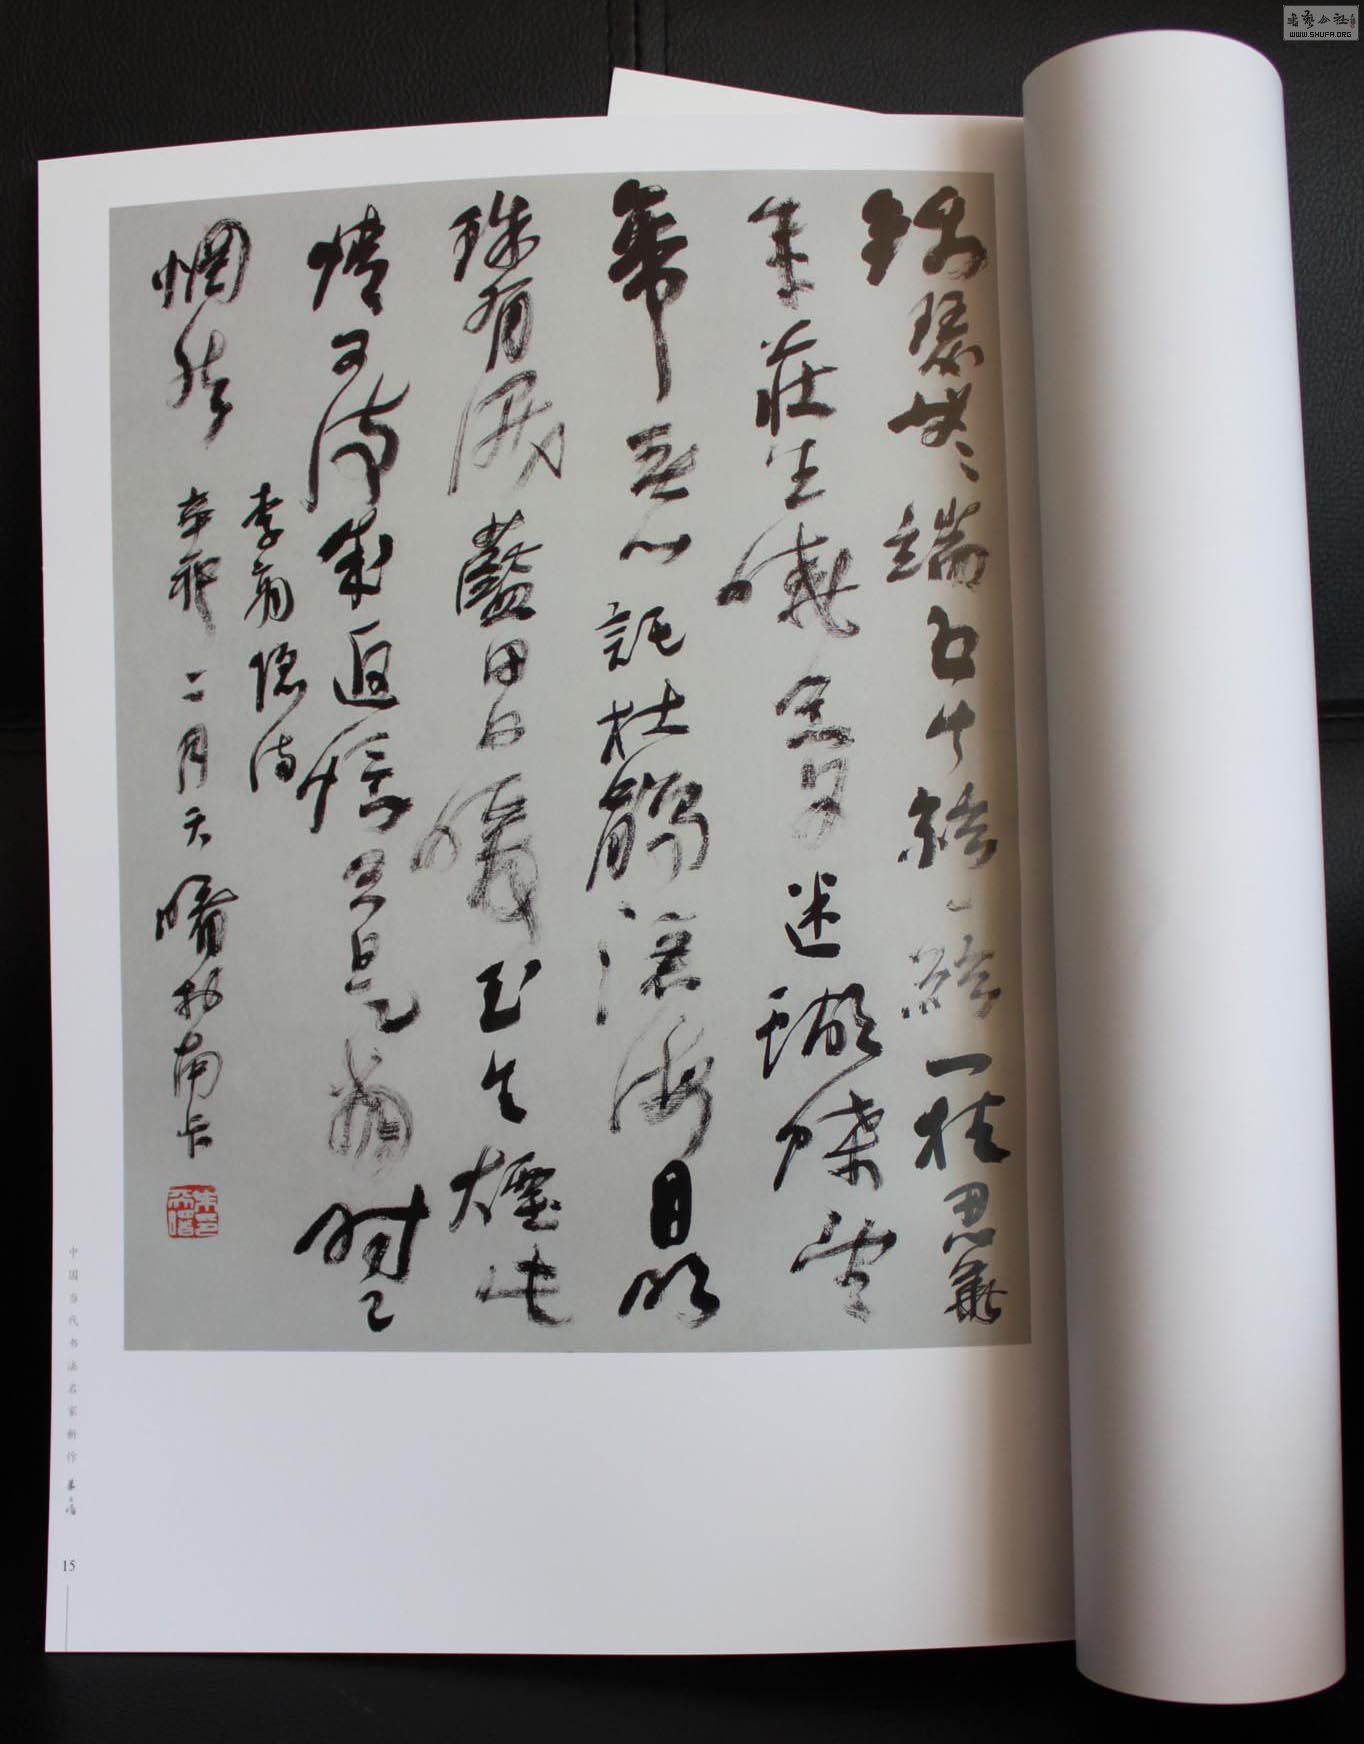 錦瑟無端五十絃一絃一柱思華
年莊生曉夢迷蝴蝶望
帝春心託杜鵑滄海月明
珠有淚藍田日暖玉生煙此
情可待成追憶只是當時已
惘然
李商隱詩
辛卯二月天曙於南
中国当代书法名家新作
15
WWW.SHUFA.ORG